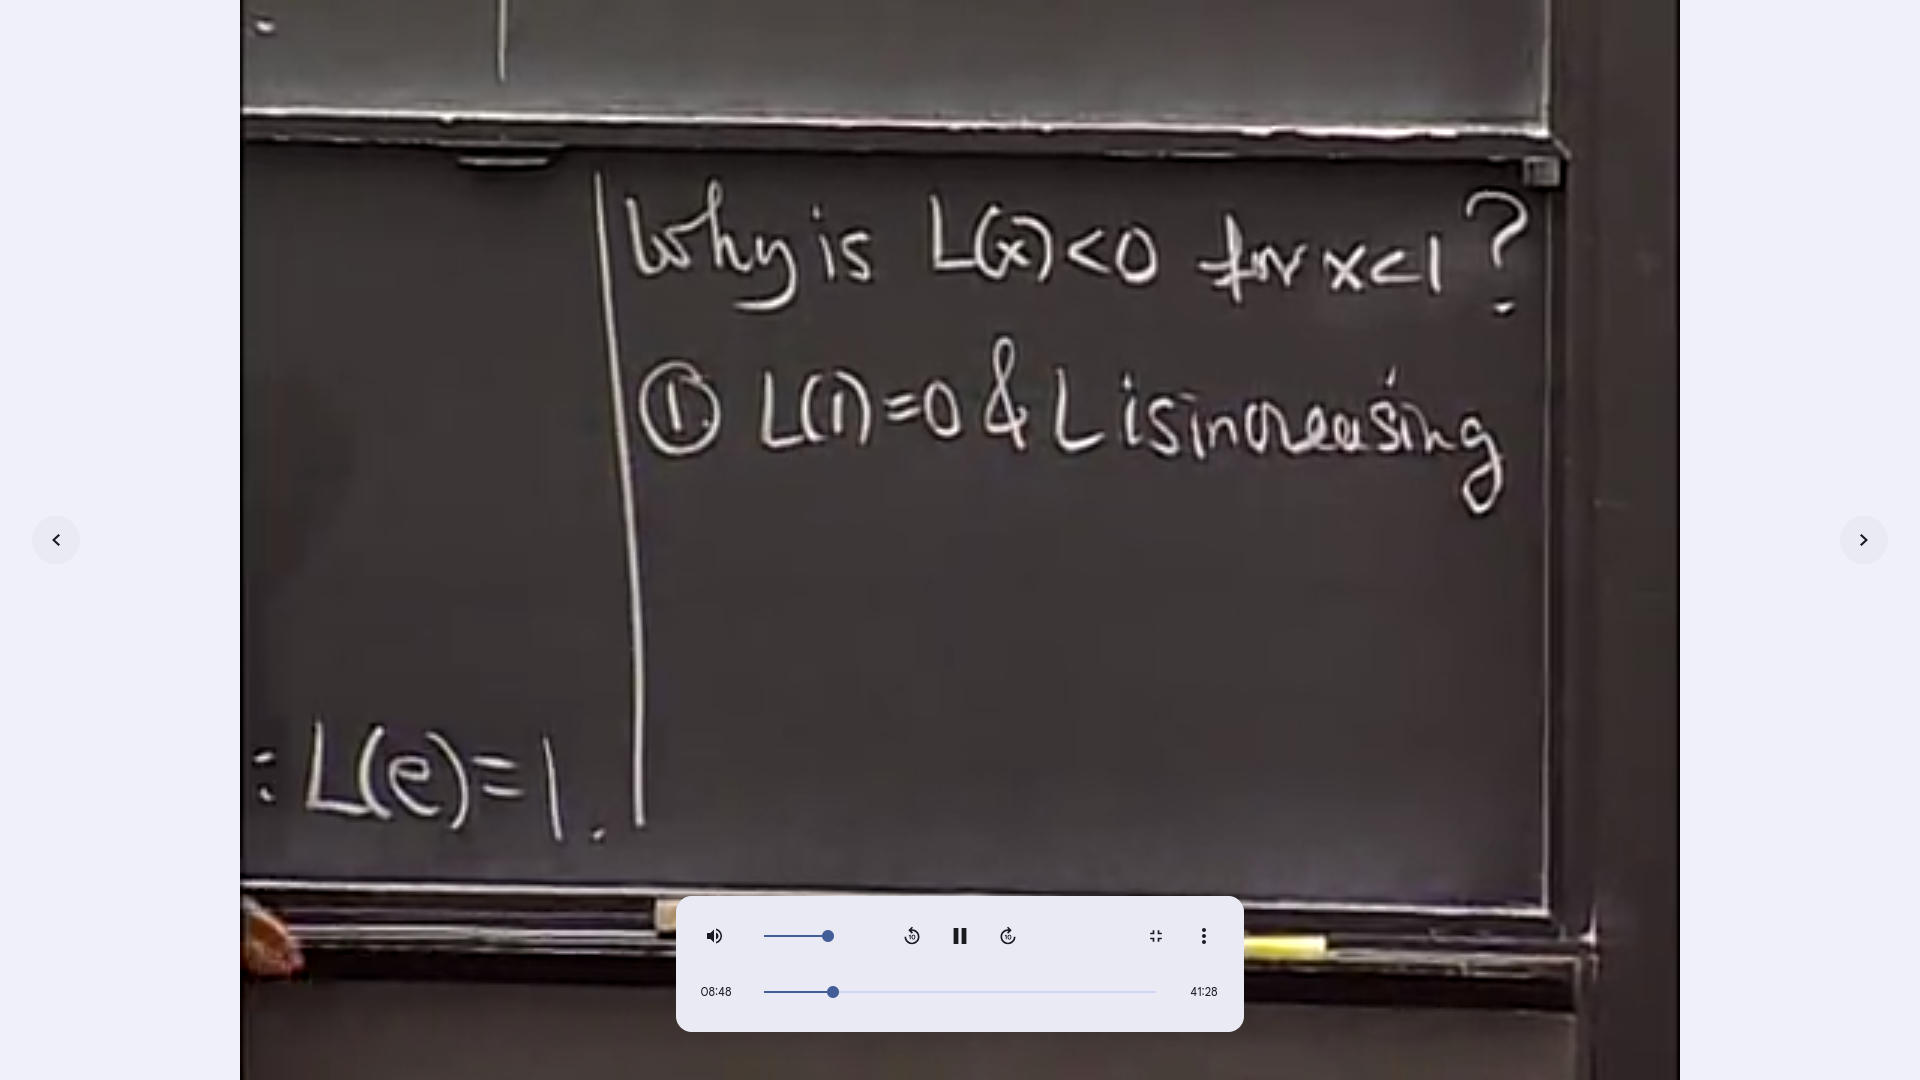 Why is L(x)<0 for x<1?
① L(1)=0 & L is increasing
: L(e)=1.
08:48
41:28